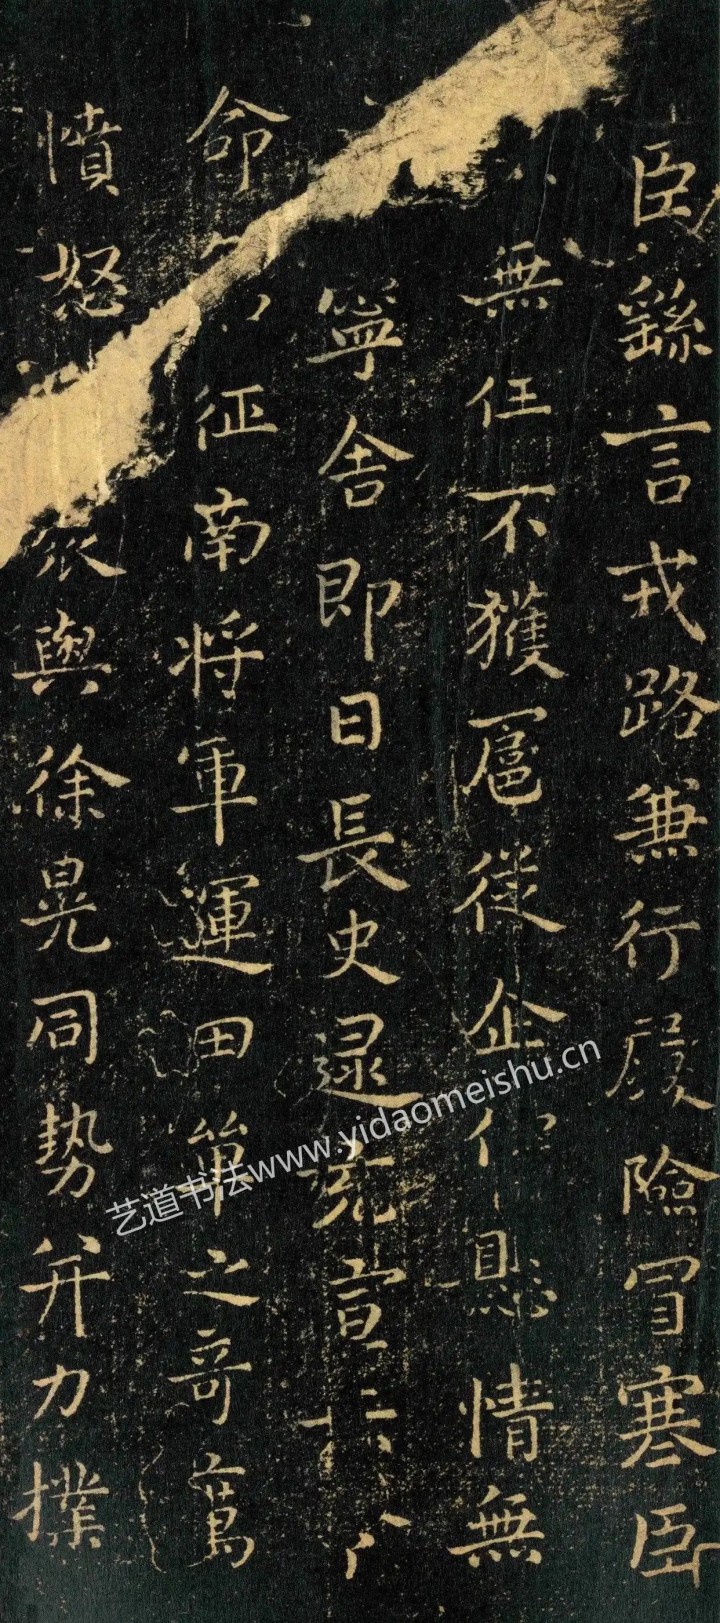 臣繇言戎路兼行履險冒寒臣
無任不獲扈從企仰懸情無
寧舍即日長史逯充宣
命 征南將軍運田單之奇萬
憤怒 與徐晃同勢并力撲
艺道书法www.yidaomeishu.cn